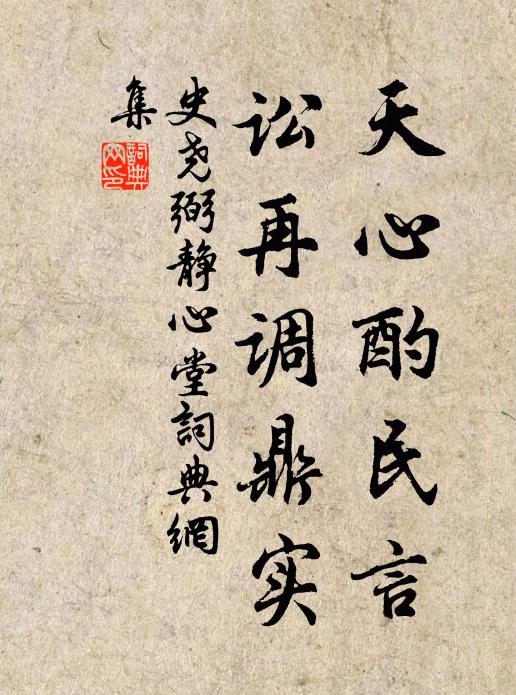 天心酌民言
讼再调鼎实
史尧弼静心堂詞典網
集
詞典
网印